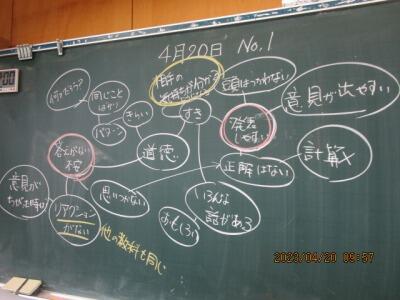 4月20日 No.1
相手の
気持ちが分かる
頭はつかわない
意見が出やすい
同じこと
ばかり
きらい
すき
発表
しやすい
パターン
道徳
答えがない
不安
正解はない
計算×
意見が
ちがう時
リアクション
がない
思いつかない
おもしろい
いろんな
話がある
他の教科も同じ
2023/04/20 09:57